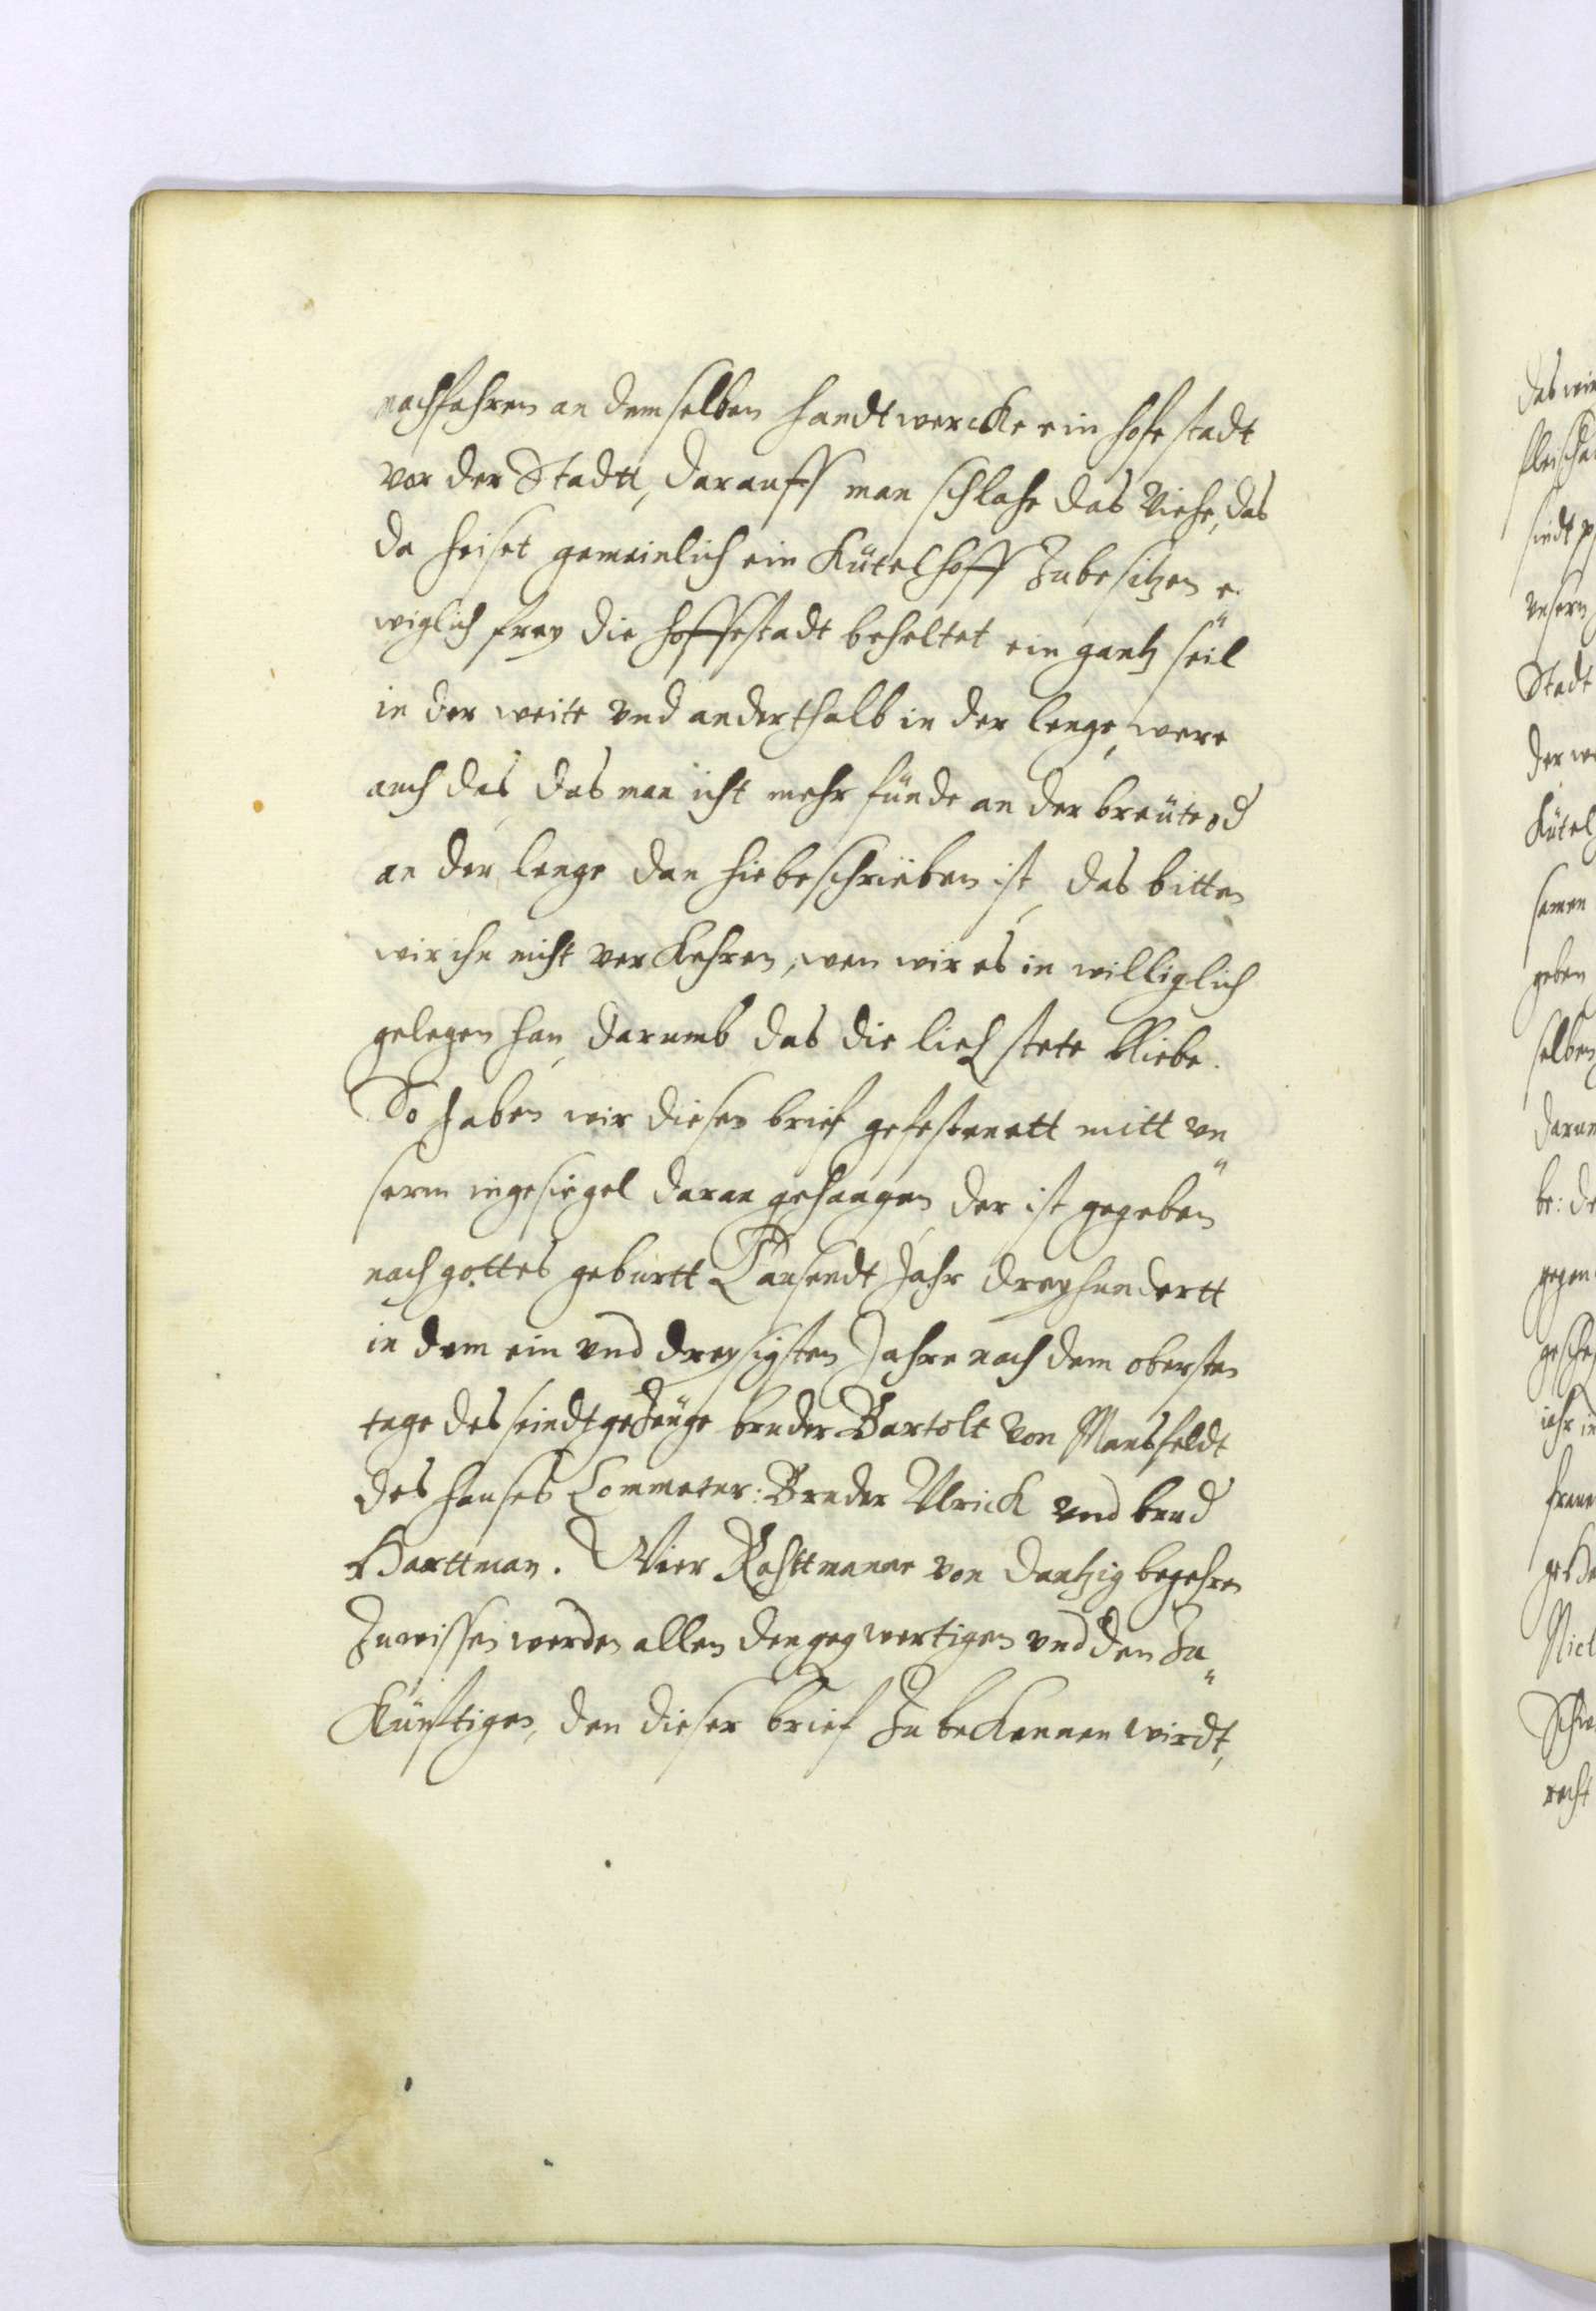 nachfahren an dem selben handtwercke ein hofestadt
vor der Stadtt, darauff man schlahe das Viehe, das
da heiset gemeinlich ein Kütelhoff Zubesitzen e„
wiglich frey die hoffestadt beheltet ein gantz seil
in der weite vnd anderthalb in der lenge, were
auch das, das man icht mehr fünde an der breüte od
an der lenge dan hie beschrieben ist, das bitten
wir ihn nicht verkehren, wen wir es in williglich
gelegen han, darumb das die lieh stete bliebe.
So haben wir diesen brief gefestenett mitt vn„
serm ingesiegel daran gehangen, der ist gegeben
nach gottes geburtt Tausendt Jahr dreyhundertt
in dem ein vnd dreysigsten Jahre nach dem obersten
tage des seindt geZeüge bruder Bartolt von Mansfeldt
des hauses Commeter: Bruder Ulrick vnd brud
Harttman. Wier Rahttmanne von Dantzig begehren
Zuwissen werden allen den gegwertigen vnd den Zu„
Künftigen, den dieser brief Zu bekennen wirdt,
das wir
Stadt
Kütel
samen
geben
selben
recht